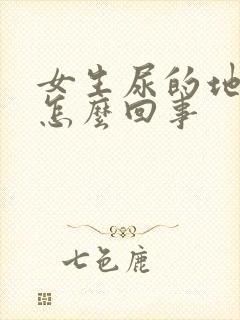 女生尿的地
怎麼回事
七色鹿